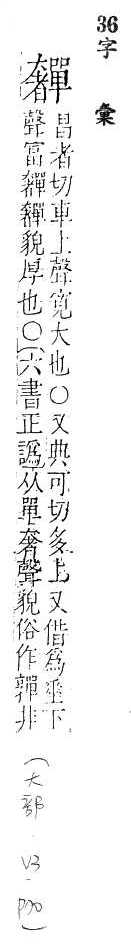 36字彙
奲
昌者切車上聲寬大也○又典可切多上又借爲垂下
聲富奲奲貌厚也○(六書正譌从單奢聲貌俗作嚲非
(大部.V3-P30)